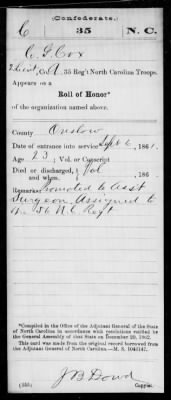 (Confederate.)
C 35 N.C.
C. F. Cox
2 Lieut, Co A, 35 Reg't North Carolina Troops.
Appears on a
Roll of Honor*
of the organization named above.
County Onslow
Date of entrance into service Sept 6, 1861.
Age 23; Vol. or Conscript
Died or discharged, Vol
and when , 186 .
Remarks: Promoted to Asst
Surgeon Assigned to
the 56 N.C. Regt
*Compiled in the Office of the Adjutant General of the State
of North Carolina in accordance with resolutions ratified by
the General Assembly of that State on December 20, 1862.
This card was made from the original record borrowed from
the Adjutant General of North Carolina.—M. S. 1043147.
(535) J B Dowd
Copyist.